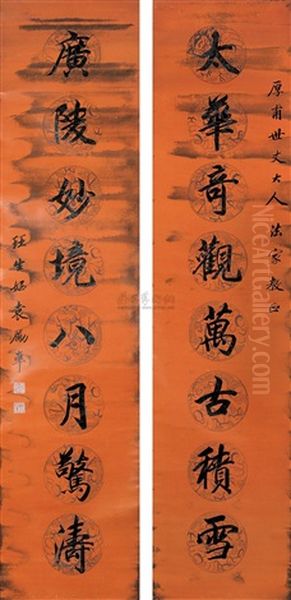 厚甫世丈大人法家教正
太華奇觀萬古積雪
廣陵妙境八月驚濤
姪生姻袁勵準